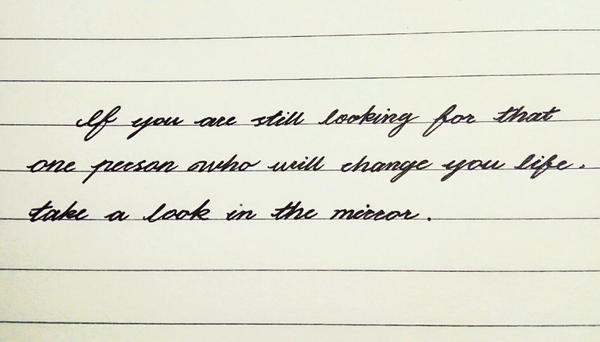 If you are still looking for that
one person who will change you life.
take a look in the mirror.